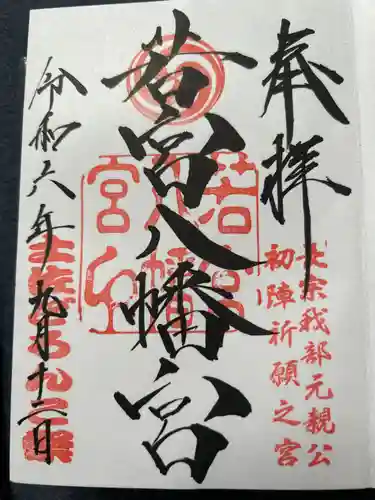 奉拝
長宗我部元親公
初陣祈願之宮
若宮八幡宮
令和六年九月十二日